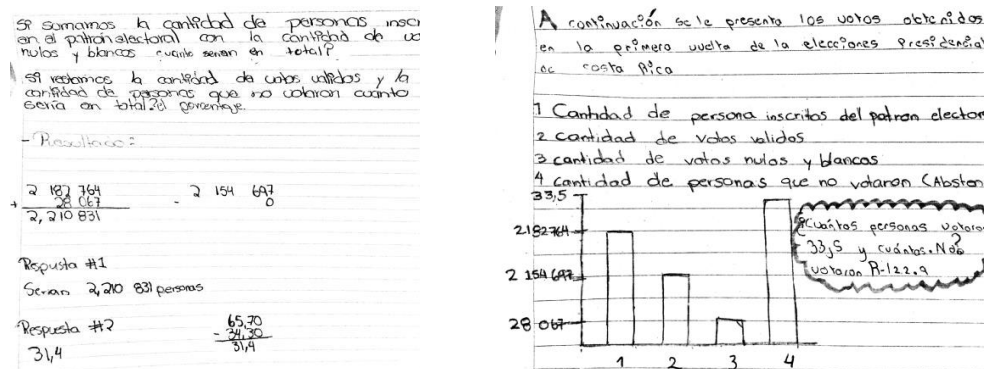 Si sumamos la cantidad de personas insc
en el patron electoral con la cantidad de vo
nulos y blancos cuanto serian en total?
Si restamos la cantidad de votos validos y la
cantidad de personas que no votaron cuánto
seria en total? el porcentaje.
- Resultados:
2 182 764
+ 28 067
2,210 831
2 154 697
- 0
Respusta #1
Serian 2,210 831 personas
Respuesta #2
31,4
65,70
- 34,30
31,4
A continuación se le presenta los votos obtenidos
en la primera vuelta de la elecciones Presidencial
de costa Rica
1 Cantidad de persona inscritos del patron elector
2 cantidad de votos validos
3 cantidad de votos nulos y blancos
4 cantidad de personas que no votaron (Absten
33,5
2182764
2 154 697
28 067
1 2 3 4
¿Cuántas personas votaron
33,5 y cuántos. No?
votaron R-122.9